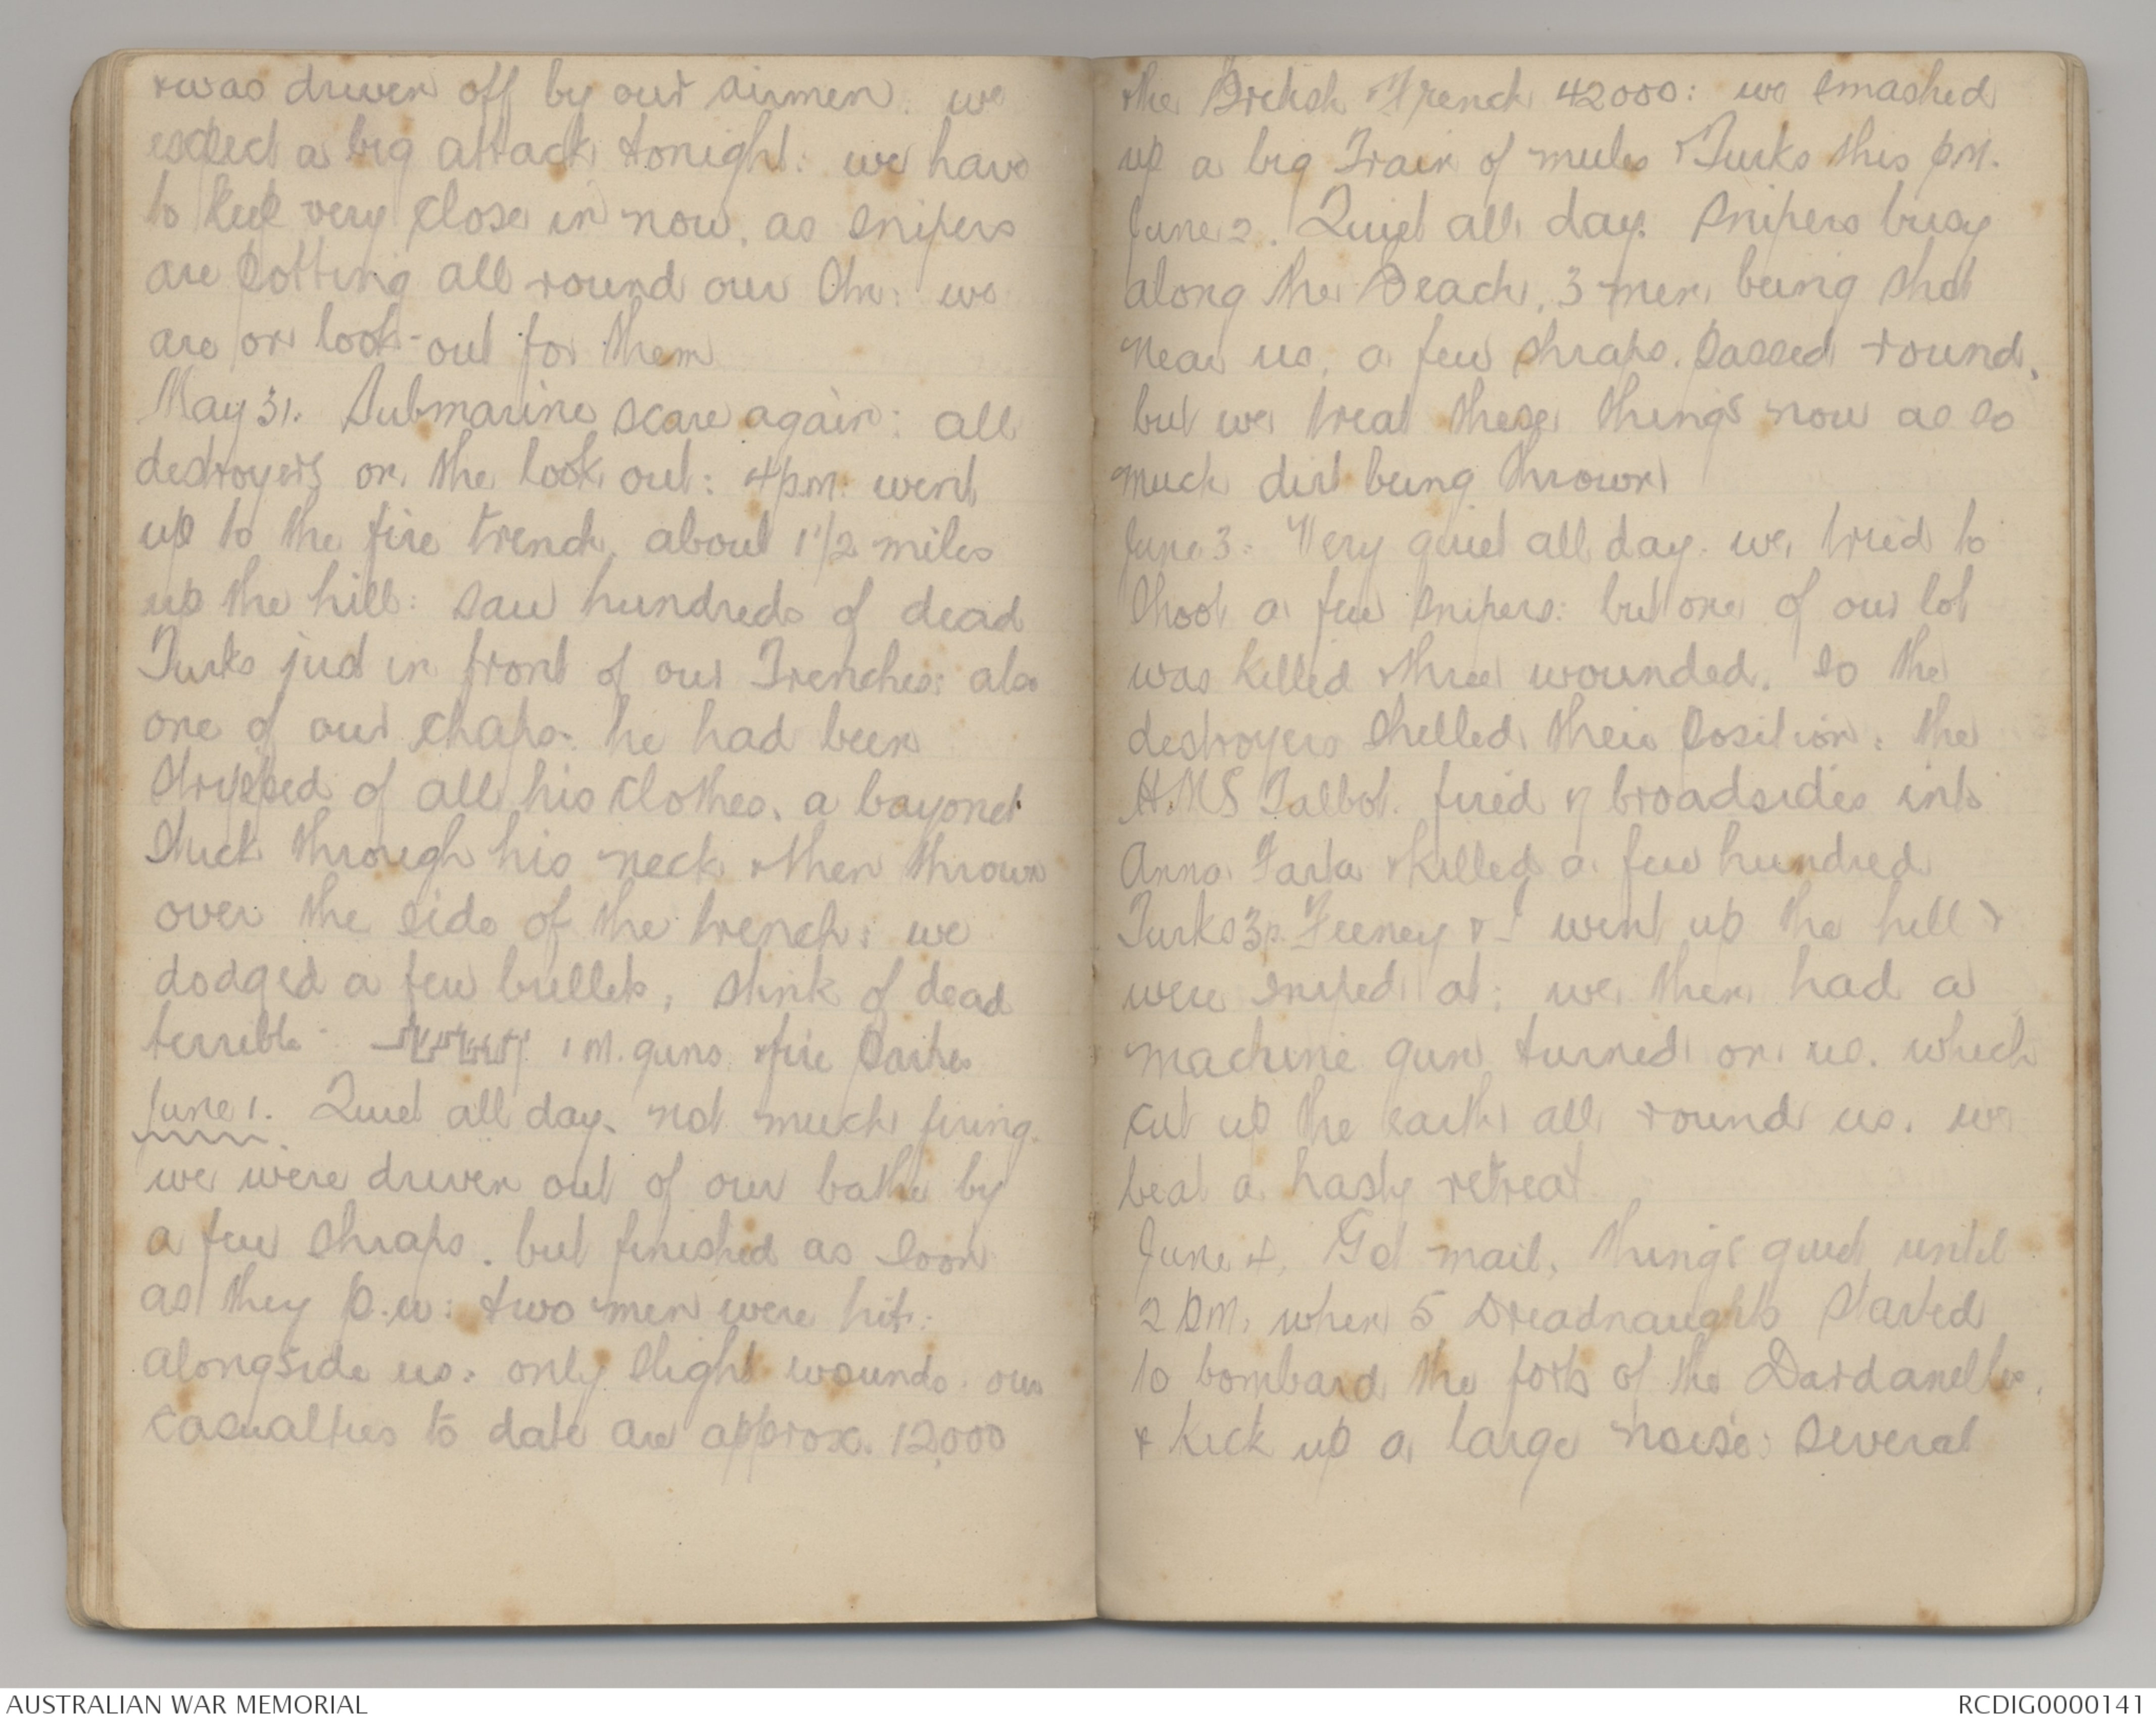 & was driven off by our airmen. we
expect a big attack tonight: we have
to keep very close in now, as snipers
are potting all round our Stn: we
are on look-out for them
May 31. Submarine scare again: all
destroyers on the look out: 4 p.m. went
up to the fire trench, about 1 1/2 miles
up the hill: saw hundreds of dead
Turks just in front of our Trenches: also
one of our chaps. he had been
stripped of all his clothes, a bayonet
stuck through his neck & then thrown
over the side of the trench: we
dodged a few bullets, stink of dead
terrible. 1 M. guns. & fire parties
June 1. Quiet all day. not much firing.
we were driven out of our bathe by
a few shraps. but finished as soon
as they p.u: two men were hit:
alongside us: only slight wounds. our
casualties to date are approx. 12,000
& the British & French 42000: we smashed
up a big Train of mules & Turks this pm.
June 2. Quiet all day. Snipers busy
along the Beach, 3 men being shot
near us, a few shraps. passed round,
but we treat these things now as so
much dirt being thrown
June 3. Very quiet all day. we tried to
shoot a few snipers: but one of our lot
was killed & three wounded. so the
destroyers shelled their position. the
H.M.S Talbot. fired 7 broadsides into
Anna Farta & killed a few hundred
Turks 3p. Feeney & I went up the hill &
were sniped at: we then had a
machine gun turned on us. which
cut up the earth all round us. we
beat a hasty retreat
June 4. Got mail. Things quiet until
2 PM. when 5 Dreadnaughts started
to bombard the forts of the Dardanelles.
& kick up a large noise: several
AUSTRALIAN WAR MEMORIAL
RCDIG0000141